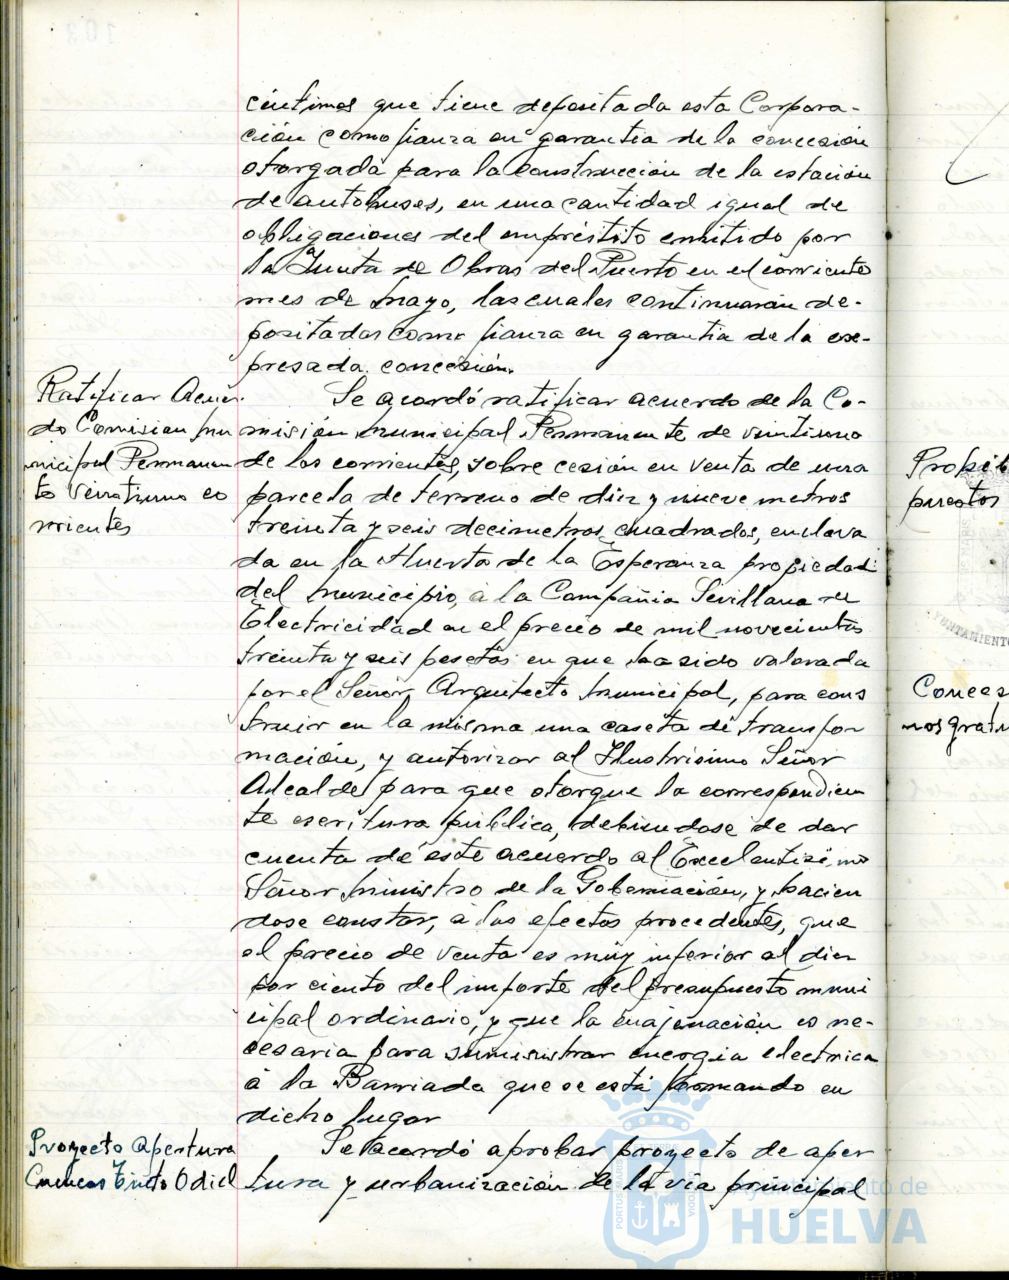 céntimos que tiene depositada esta Corpora-
ción como fianza en garantia de la concesión
otorgada para la construcción de la estación
de autobuses, en una cantidad igual de
obligaciones del empréstito emitido por
la Junta de Obras del Puerto en el corriente
mes de Mayo, las cuales continuarán de-
positadas como fianza en garantia de la ex-
presada concesión.
Ratificar Acuer-
do Comision mu
nicipal Permanen
te veintiuno co
rrientes
Se acordó ratificar acuerdo de la Co-
misión Municipal Permanente de veintiuno
de los corrientes, sobre cesión en venta de una
parcela de terreno de diez y nueve metros
treinta y seis decimetros cuadrados, enclava
da en la Huerta de la Esperanza propiedad
del Municipio, á la Compañia Sevillana de
Electricidad en el precio de mil novecientas
treinta y seis pesetas en que ha sido valorada
por el Señor Arquitecto Municipal, para cons
truir en la misma una caseta de transfor
mación, y autorizar al Ilustrisimo Señor
Alcalde para que otorgue la correspondien
te escritura pública, debiendose de dar
cuenta de este acuerdo al Excelentisimo
Señor Ministro de la Gobernación, y hacien
dose constar, á los efectos procedentes, que
el precio de venta es muy inferior al diez
por ciento del importe del presupuesto muni
cipal ordinario, y que la enajenación es ne-
cesaria para suministrar energia electrica
á la Barriada que se está formando en
dicho lugar
Proyecto apertura
Cuencas Tinto Odiel
Se acordó aprobar proyecto de aper
tura y urbanización de la via principal
Propósi
puestos
Conces
nos gratu
Ayuntamiento de
HUELVA